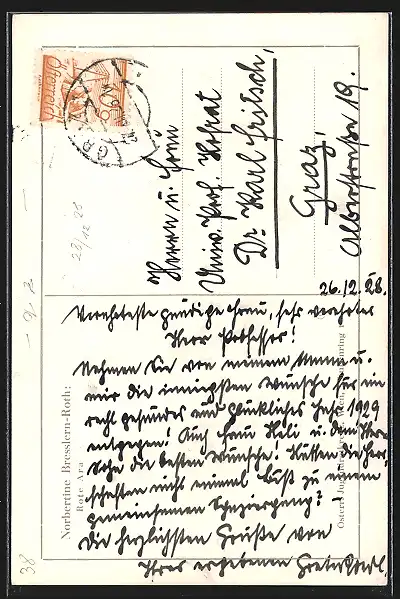 Herrn u. Frau
Univ. Prof. Hofrat
Dr. Karl Fritsch,
Graz,
Alberstraße 19.
26.12.28.
Verehrteste gnädige Frau, sehr verehrter
Herr Professor!
Nehmen Sie von meinem Manne u.
mir die innigsten Wünsche für ein
recht gesundes und glückliches Jahr 1929
entgegen! Auch Frau Heli u. dem Herrn
Sohn die besten Wünsche! Hätten die Herr-
schaften nicht einmal Lust zu einem
gemeinsamen Spaziergang? –
Die herzlichsten Grüße von
Ihrer ergebenen
Norbertine Bresslern-Roth:
Rote Ara
Österreich
23/12 28
38